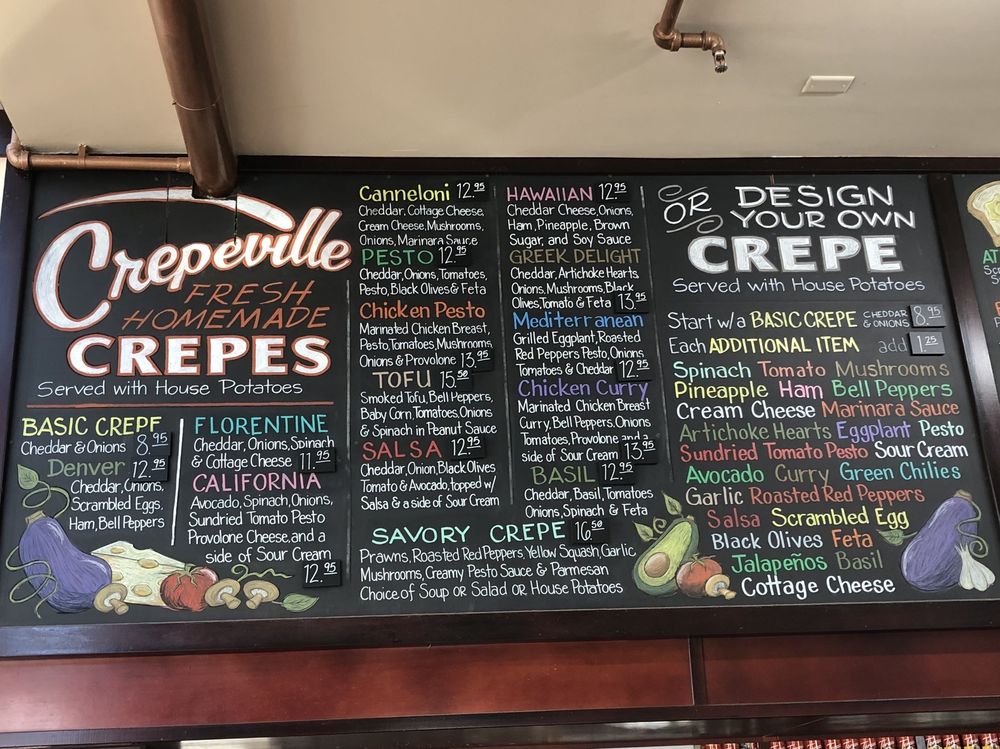 Crepeville
FRESH
HOMEMADE
CREPES
Served with House Potatoes
BASIC CREPE
Cheddar & Onions 8.95
Denver 12.95
Cheddar, Onions,
Scrambled Eggs,
Ham, Bell Peppers
FLORENTINE
Cheddar, Onions, Spinach
& Cottage Cheese 11.95
CALIFORNIA
Avocado, Spinach, Onions,
Sundried Tomato Pesto
Provolone Cheese, and a
side of Sour Cream
12.95
Canneloni 12.95
Cheddar, Cottage Cheese,
Cream Cheese, Mushrooms,
Onions, Marinara Sauce
PESTO 12.95
Cheddar, Onions, Tomatoes,
Pesto, Black Olives & Feta
Chicken Pesto
Marinated Chicken Breast,
Pesto, Tomatoes, Mushrooms,
Onions & Provolone 13.95
TOFU 15.50
Smoked Tofu, Bell Peppers,
Baby Corn, Tomatoes, Onions
& Spinach in Peanut Sauce
SALSA 12.95
Cheddar, Onion, Black Olives
Tomato & Avocado, topped w/
Salsa & a side of Sour Cream
HAWAIIAN 12.95
Cheddar Cheese, Onions,
Ham, Pineapple, Brown
Sugar, and Soy Sauce
GREEK DELIGHT
Cheddar, Artichoke Hearts,
Onions, Mushrooms, Black
Olives, Tomato & Feta 13.95
Mediterranean
Grilled Eggplant, Roasted
Red Peppers Pesto, Onions,
Tomatoes & Cheddar 12.95
Chicken Curry
Marinated Chicken Breast
Curry, Bell Peppers, Onions
Tomatoes, Provolone and a
side of Sour Cream 13.95
BASIL 12.95
Cheddar, Basil, Tomatoes
Onions, Spinach & Feta
SAVORY CREPE 16.50
Prawns, Roasted Red Peppers, Yellow Squash, Garlic
Mushrooms, Creamy Pesto Sauce & Parmesan
Choice of Soup or Salad or House Potatoes
OR DESIGN
YOUR OWN
CREPE
Served with House Potatoes
Start w/a BASIC CREPE CHEDDAR & ONIONS 8.95
Each ADDITIONAL ITEM add 1.25
Spinach Tomato Mushrooms
Pineapple Ham Bell Peppers
Cream Cheese Marinara Sauce
Artichoke Hearts Eggplant Pesto
Sundried Tomato Pesto Sour Cream
Avocado Curry Green Chilies
Garlic Roasted Red Peppers
Salsa Scrambled Egg
Black Olives Feta
Jalapeños Basil
Cottage Cheese